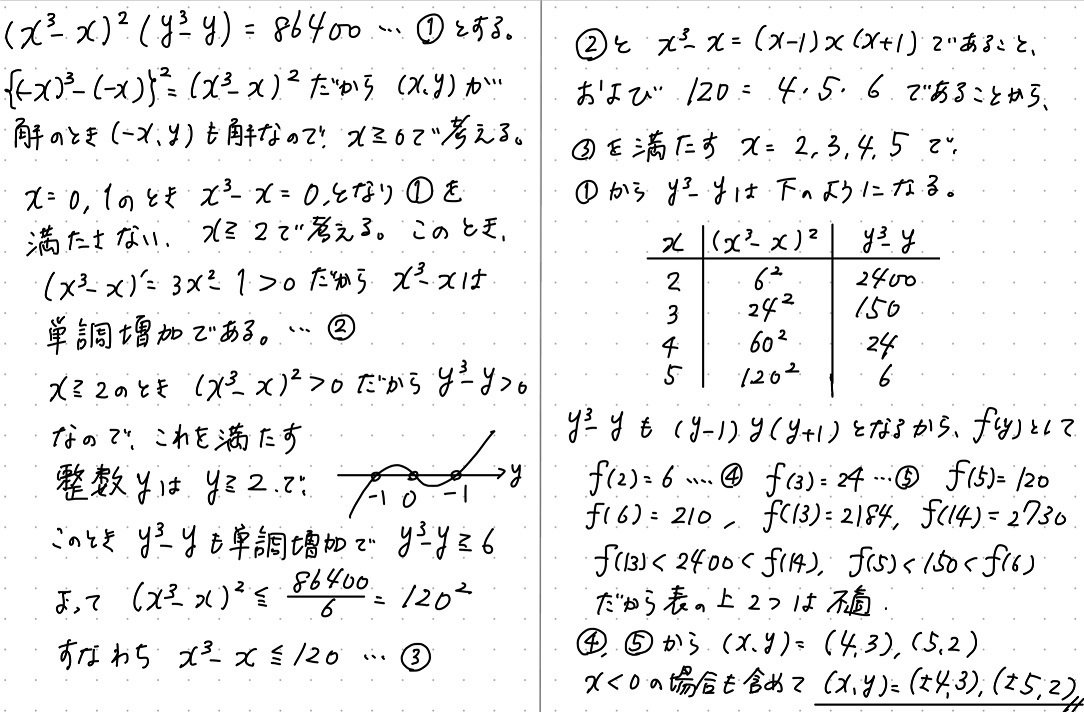 (x³-x)²(y³-y) = 86400 … ① とする。
{(-x)³-(-x)}² = (x³-x)² だから (x,y) が
解のとき (-x,y) も解なので、x≧0で考える。
x=0,1のとき x³-x=0,となり ① を
満たさない. x≧2で考える。このとき、
(x³-x)'= 3x²-1>0 だから x³-xは
単調増加である。… ②
x≧2のとき (x³-x)²>0 だから y³-y>0
なので、これを満たす
整数yは y≧2 で、
-1 0 -1 y
このとき y³-yも単調増加で y³-y≧6
よって (x³-x)² ≦ 86400/6 = 120²
すなわち x³-x≦120 … ③
②と x³-x=(x-1)x(x+1) であること、
および 120 = 4・5・6 であることから、
③を満たす x=2,3,4,5 で、
①から y³-yは下のようになる。
x (x³-x)² y³-y
2 6² 2400
3 24² 150
4 60² 24
5 120² 6
y³-y も (y-1)y(y+1) となるから、f(y)として
f(2)=6 …. ④ f(3)=24 … ⑤ f(5)=120
f(6)=210, f(13)=2184, f(14)=2730
f(13)<2400<f(14), f(5)<150<f(6)
だから表の上2つは不適.
④,⑤から (x,y)= (4,3),(5,2)
x<0の場合も含めて (x,y)=(±4,3),(±5,2)